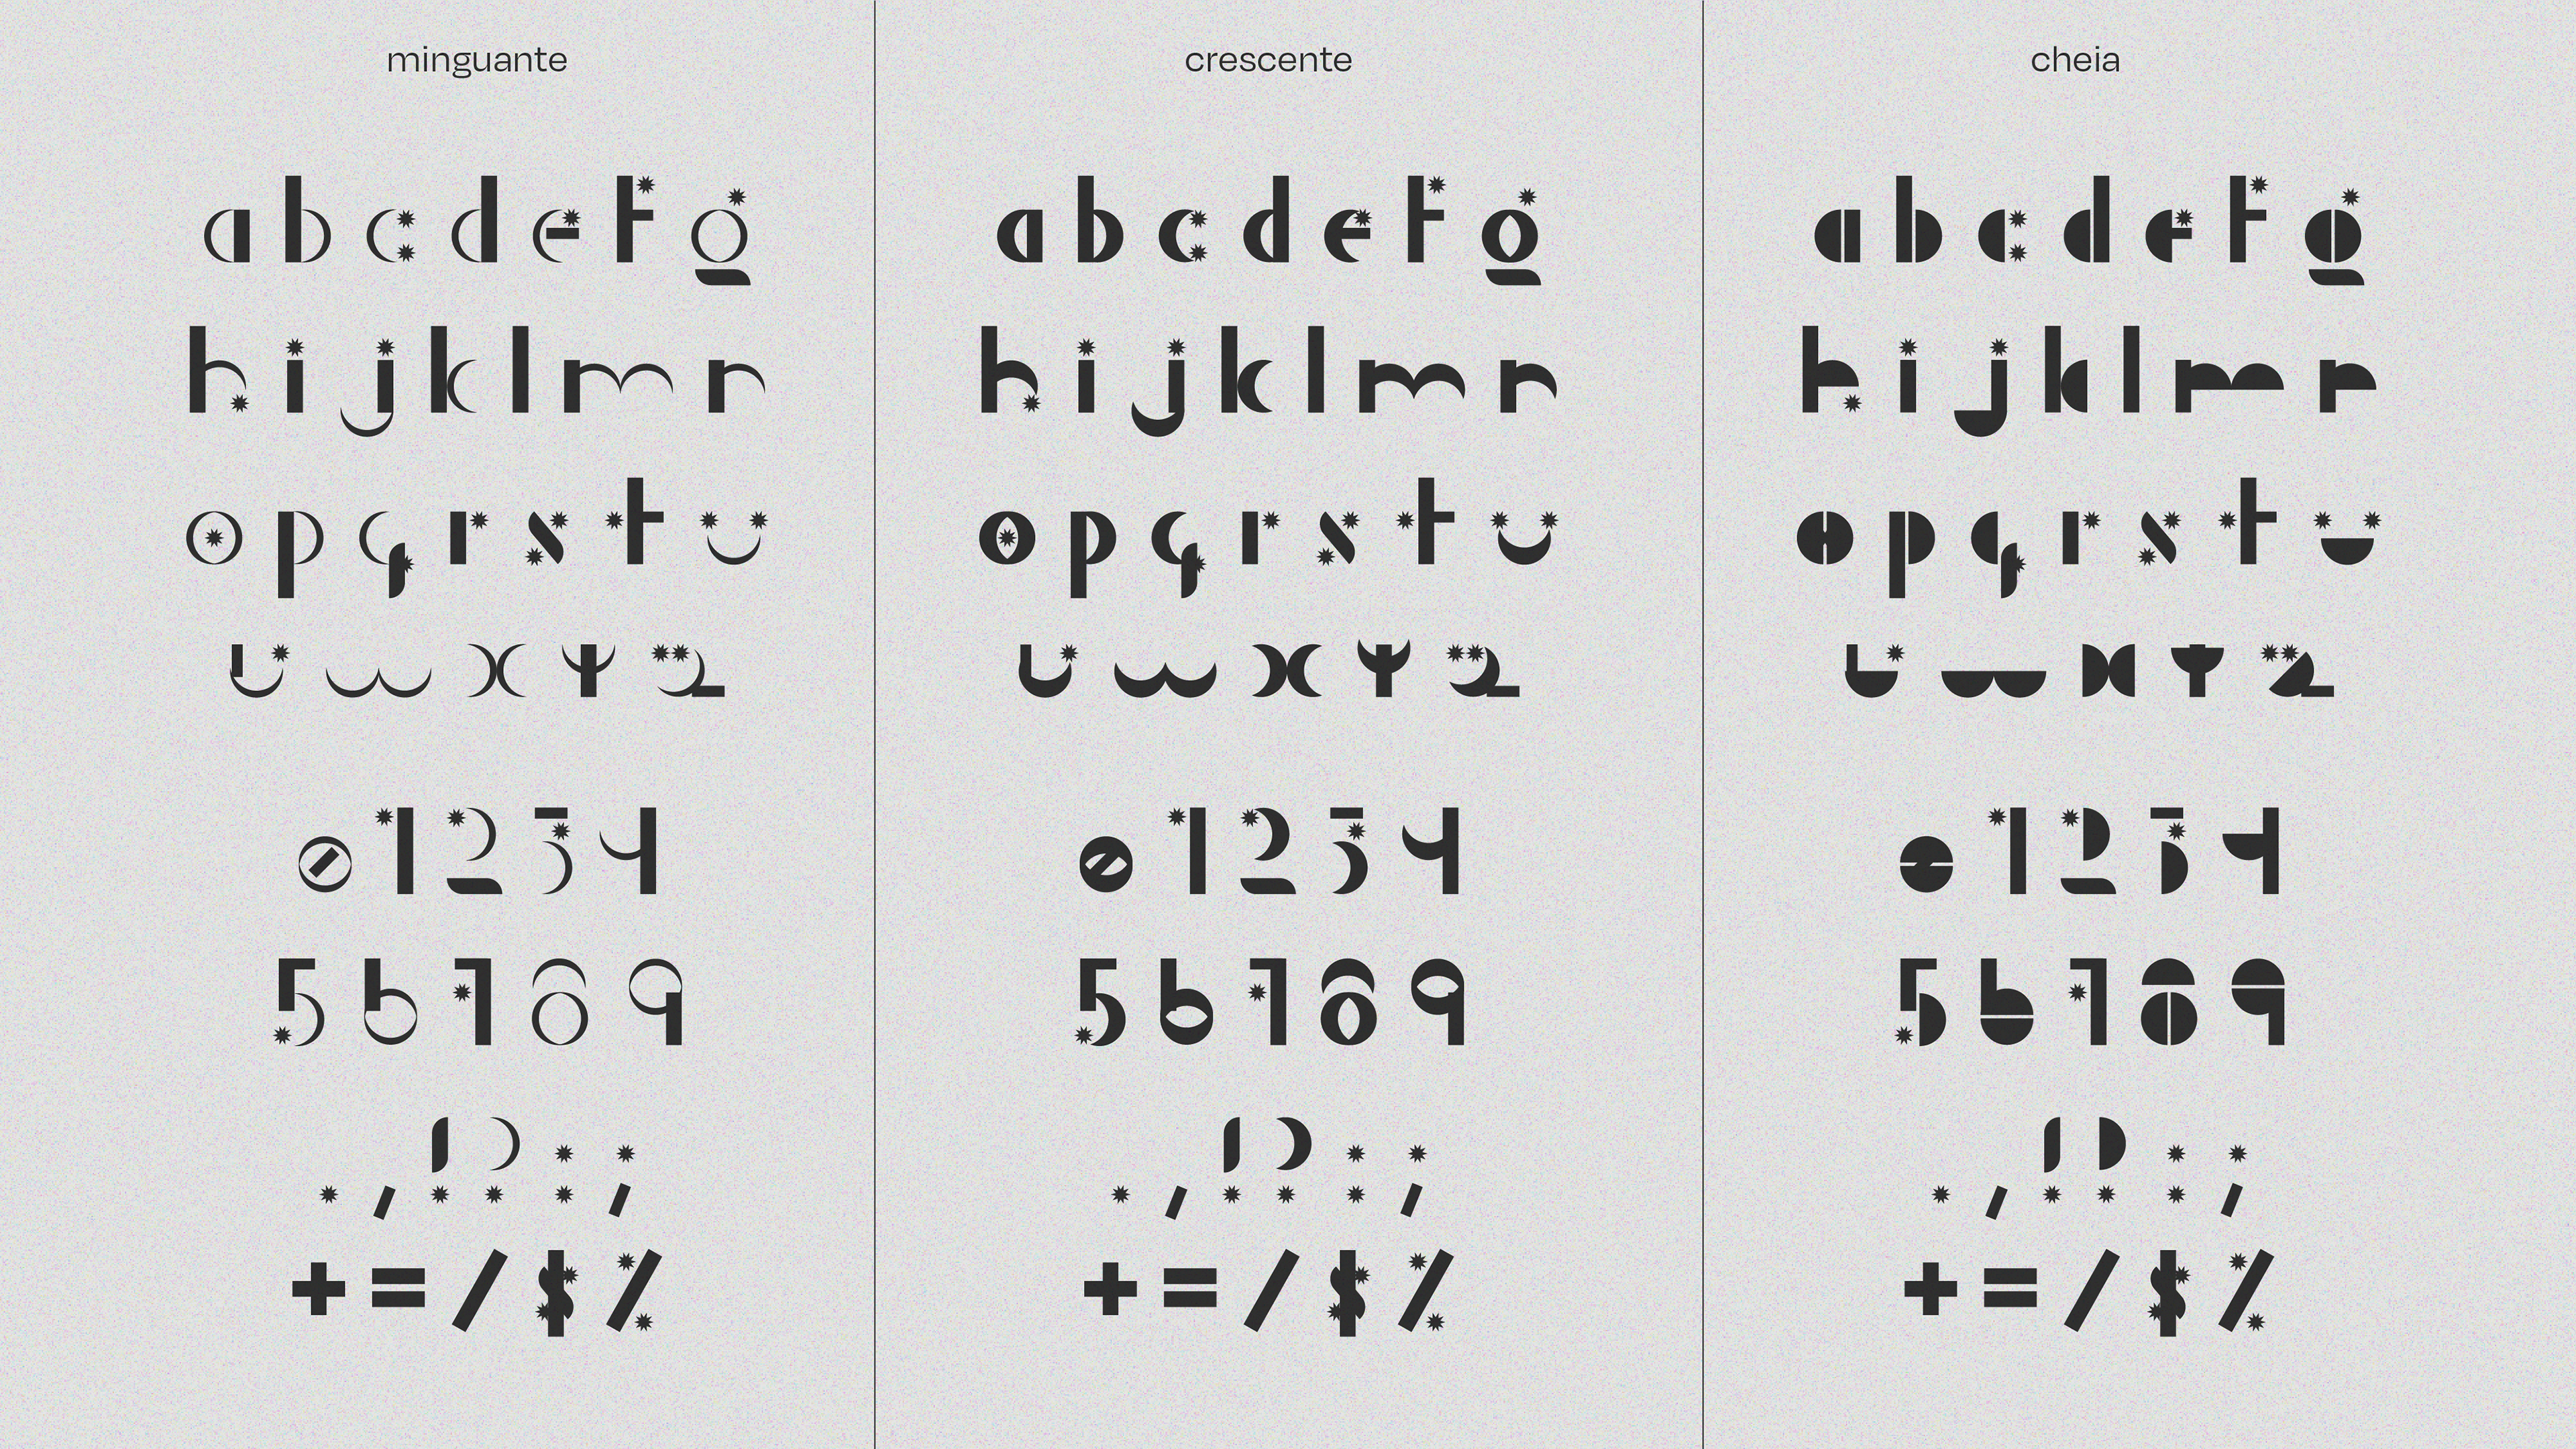 minguante
a b c d e f g
h i j k l m n
o p q r s t u
v w x y z
0 1 2 3 4
5 6 7 8 9
. , ! ? : ;
+ = / $ %
crescente
a b c d e f g
h i j k l m n
o p q r s t u
v w x y z
0 1 2 3 4
5 6 7 8 9
. , ! ? : ;
+ = / $ %
cheia
a b c d e f g
h i j k l m n
o p q r s t u
v w x y z
0 1 2 3 4
5 6 7 8 9
. , ! ? : ;
+ = / $ %